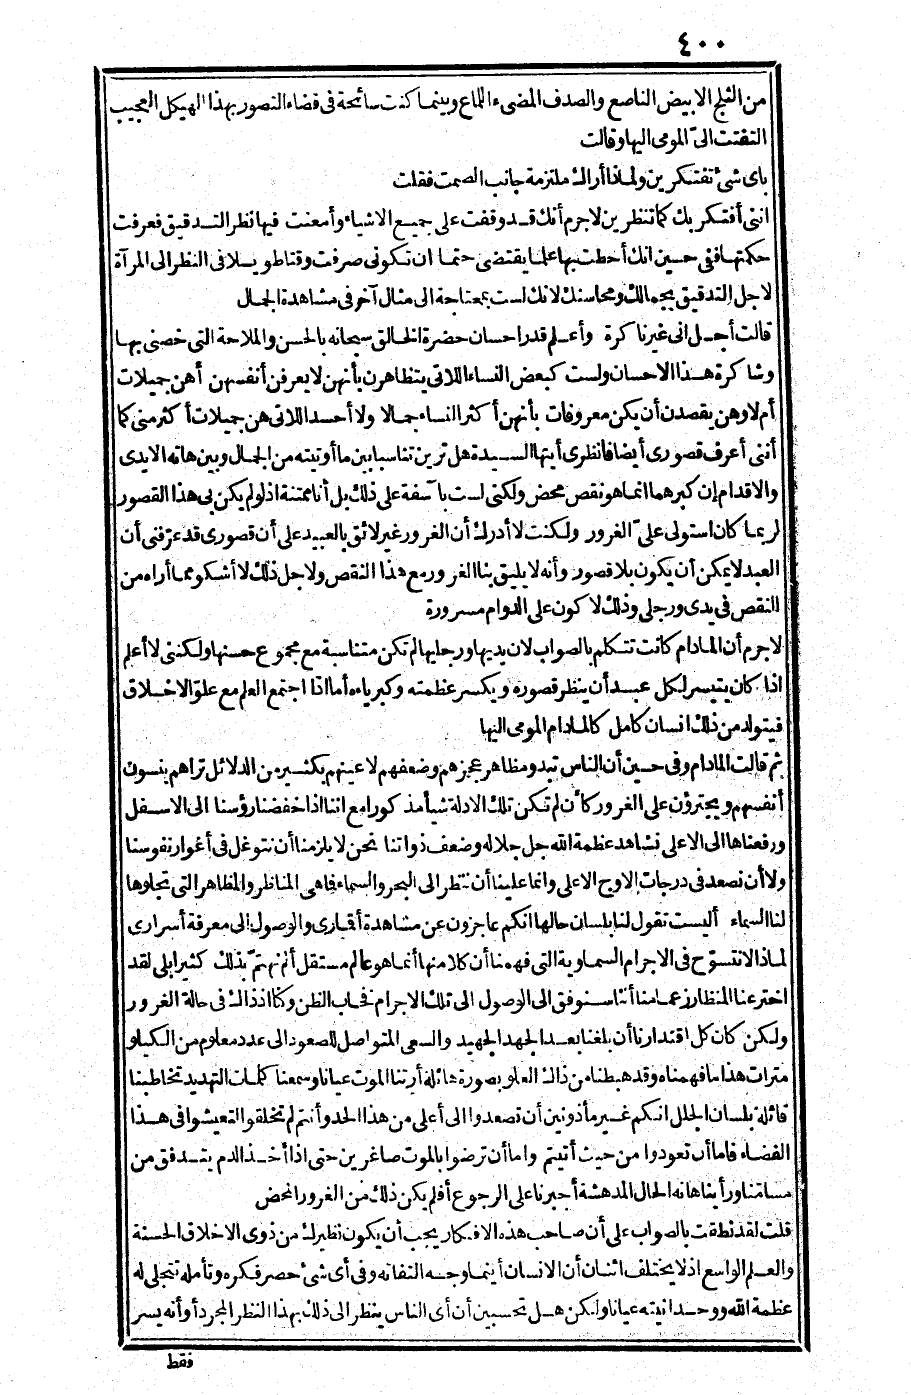 ٤٠٠
من الثلج الابيض الناصع والصدف المضىء اللماع وبينما كنت سائحة فى فضاء التصور بهذا الهيكل العجيب
التفتت الىّ المومى اليها وقالت
باى شئ تفتكرين ولماذا أراك ملتزمة جانب الصمت فقلت
اننى أفتكر بك كما تنظرين لاجرم أنك قد وقفت على جميع الاشياء وأمعنت فيها نظر التدقيق فعرفت
حكمتها ففى حين انك أحطت بها علما يقتضى حتما ان تكونى صرفت وقتا طويلا فى النظر الى المرآة
لاجل التدقيق بجمالك ومحاسنك لانك لست بمحتاجة الى مثال آخر فى مشاهدة الجمال
قالت أجل انى غير ناكرة وأعلم قدر احسان حضرة الخالق سبحانه بالحسن والملاحة التى خصنى بها
وشاكرة هذا الاحسان ولست كبعض النساء اللاتى يتظاهرن بأنهن لا يعرفن أنفسهن أهن جميلات
أم لا وهن يقصدن أن يكن معروفات بأنهن أكثر النساء جمالا ولا أحسد اللاتى هن جميلات أكثر منى كما
أننى أعرف قصورى أيضا فانظرى أيتها السيدة هل ترين تناسبا بين ما أوتيته من الجمال وبين هاته الايدى
والاقدام إن كبرهما انما هو نقص محض ولكنى لست بآسفة على ذلك بل أنا ممتنة اذ لو لم يكن بى هذا القصور
لربما كان استولى علىّ الغرور ولكنت لا أدرك أن الغرور غير لائق بالعبيد على أن قصورى قد عرّفنى أن
العبد لا يمكن أن يكون بلا قصور وأنه لا يليق بنا الغرور مع هذا النقص ولاجل ذلك لا أشكو مما أراه من
النقص فى يدى ورجلى وذلك لاكون على الدوام مسرورة
لاجرم أن المادام كانت تتكلم بالصواب لان يديها ورجليها لم تكن متناسبة مع مجموع حسنها ولكننى لا أعلم
اذا كان يتيسر لكل عبد أن ينظر قصوره ويكسر عظمته وكبرياءه أما اذا اجتمع العلم مع علو الاخلاق
فيتولد من ذلك انسان كامل كالمادام المومى اليها
ثم قالت المادام وفى حين أن الناس تبدو مظاهر عجزهم وضعفهم لاعينهم بكثير من الدلائل تراهم ينسون
أنفسهم ويجترؤن على الغرور كأن لم تكن تلك الادلة شيأ مذكورا مع اننا اذا خفضنا رؤسنا الى الاسفل
ورفعناها الى الاعلى نشاهد عظمة الله جل جلاله وضعف ذواتنا نحن لا يلزمنا أن نتوغل فى أغوار نفوسنا
ولا أن نصعد فى درجات الاوج الاعلى وانما علينا أن ننظر الى البحر والسماء فما هى المناظر والمظاهر التى تجلوها
لنا السماء أليست تقول لنا بلسان حالها انكم عاجزون عن مشاهدة أقمارى والوصول الى معرفة أسرارى
لماذا لا نتسوّح فى الاجرام السماوية التى فهمنا أن كلا منها انما هو عالم مستقل أنم نهتمّ بذلك كثيرا بلى لقد
اخترعنا المنظار زعما منا أننا سنوفق الى الوصول الى تلك الاجرام فخاب الظن وكنا اذ ذاك فى حالة الغرور
ولكن كان كل اقتدارنا أن بلغنا بعد الجهد الجهيد والسعى المتواصل للصعود الى عدد معلوم من الكيلو
مترات هذا ما فهمناه وقد هبطنا من ذاك العلو بصورة هائلة أرتنا الموت عيانا وسمعنا كلمات التهديد تخاطبنا
قائلة بلسان الجلل انكم غير مأذونين أن تصعدوا الى أعلى من هذا الحد وأنتم لم تخلقوا لتعيشوا فى هذا
الفضاء فاما أن تعودوا من حيث أتيتم واما أن ترضوا بالموت صاغرين حتى اذا أخذ الدم يتدفق من
مساتنا ورأينا هاته الحال المدهشة أجبرنا على الرجوع أفلم يكن ذلك من الغرور المحض
قلت لقد نطقت بالصواب على أن صاحب هذه الافكار يجب أن يكون نظيرك من ذوى الاخلاق الحسنة
والعلم الواسع اذ لا يختلف اثنان أن الانسان أينما وجه التفاته وفى أى شئ حصر فكره وتأمله تتجلى له
عظمة الله ووحدانيته عيانا ولكن هل تحسبين أن أى الناس ينظر الى ذلك بهذا النظر المجرد أو أنه يسر
فقط